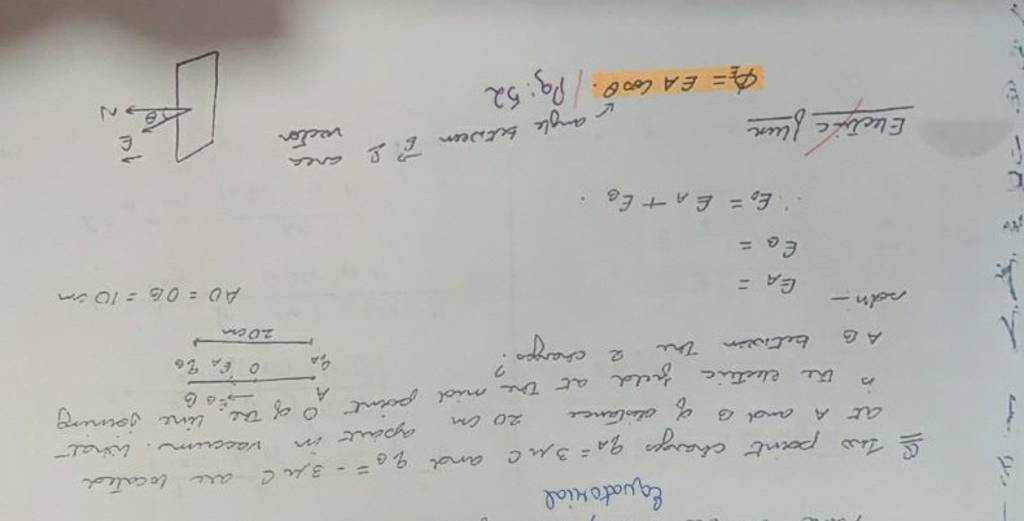 Equatorial
Q Two point charges qA = 3μC and qB = -3μC are located
at A and B of distance 20 cm apart in vaccum. What
is the electric field at the mid point O of the line joining
AB between the 2 charges?
A O B
qA EA qB
20cm
soln:-
EA =
AO = OB = 10 cm
EB =
∴ E0 = EA + EB.
Electric flux
angle between E & area vector
ΦE = EA cosθ. / Pg: 52
E
θ
N